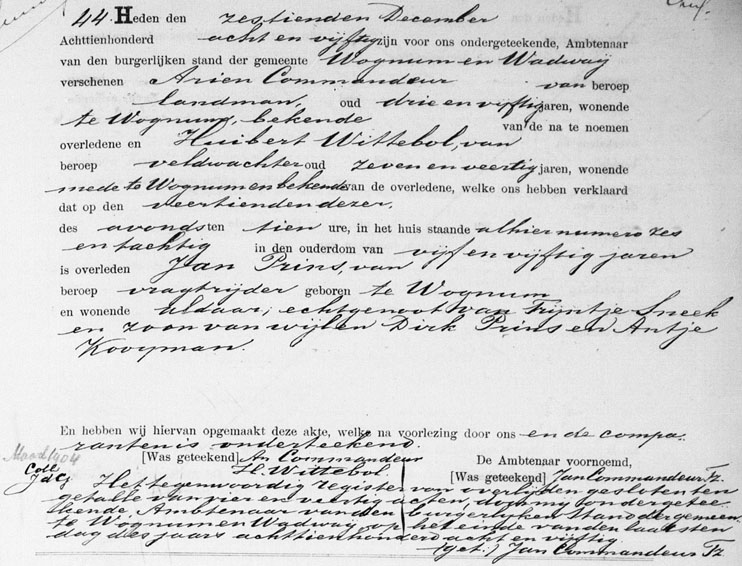 44. Heden den zestienden December
Achttienhonderd acht en vijftig zijn voor ons ondergeteekende, Ambtenaar
van den burgerlijken stand der gemeente Wognum en Wadway
verschenen Arien Commandeur van beroep
landman, oud drie en vijftig jaren, wonende
te Wognum, bekende van de na te noemen
overledene en Huibert Wittebol, van
beroep veldwachter oud zeven en veertig jaren, wonende
mede te Wognum en bekende van de overledene, welke ons hebben verklaard
dat op den veertienden dezer,
des avonds ten tien ure, in het huis staande alhier numero zes
en tachtig in den ouderdom van vijf en vijftig jaren
is overleden Jan Prins, van
beroep vragtrijder geboren te Wognum
en wonende aldaar; echtgenoot van Trijntje Sneek
en zoon van wijlen Dirk Prins en Antje
Kooyman.
En hebben wij hiervan opgemaakt deze akte, welke na voorlezing door ons en de compa-
ranten is onderteekend.
[Was geteekend] An Commandeur
H. Wittebol.
De Ambtenaar voornoemd,
[Was geteekend] Jan Commandeur Tz.
Coll
JdG
Het tegenwoordig register van overlijden gesloten ten
getalle van vier en veertig acten, door my ondergetee-
kende, Ambtenaar van den burgerlyken stand der gemeen-
te Wognum en Wadway, op heteinde van den laatsten
dag des jaars achttienhonderd acht en vijftig
(get.) Jan Commandeur Tz